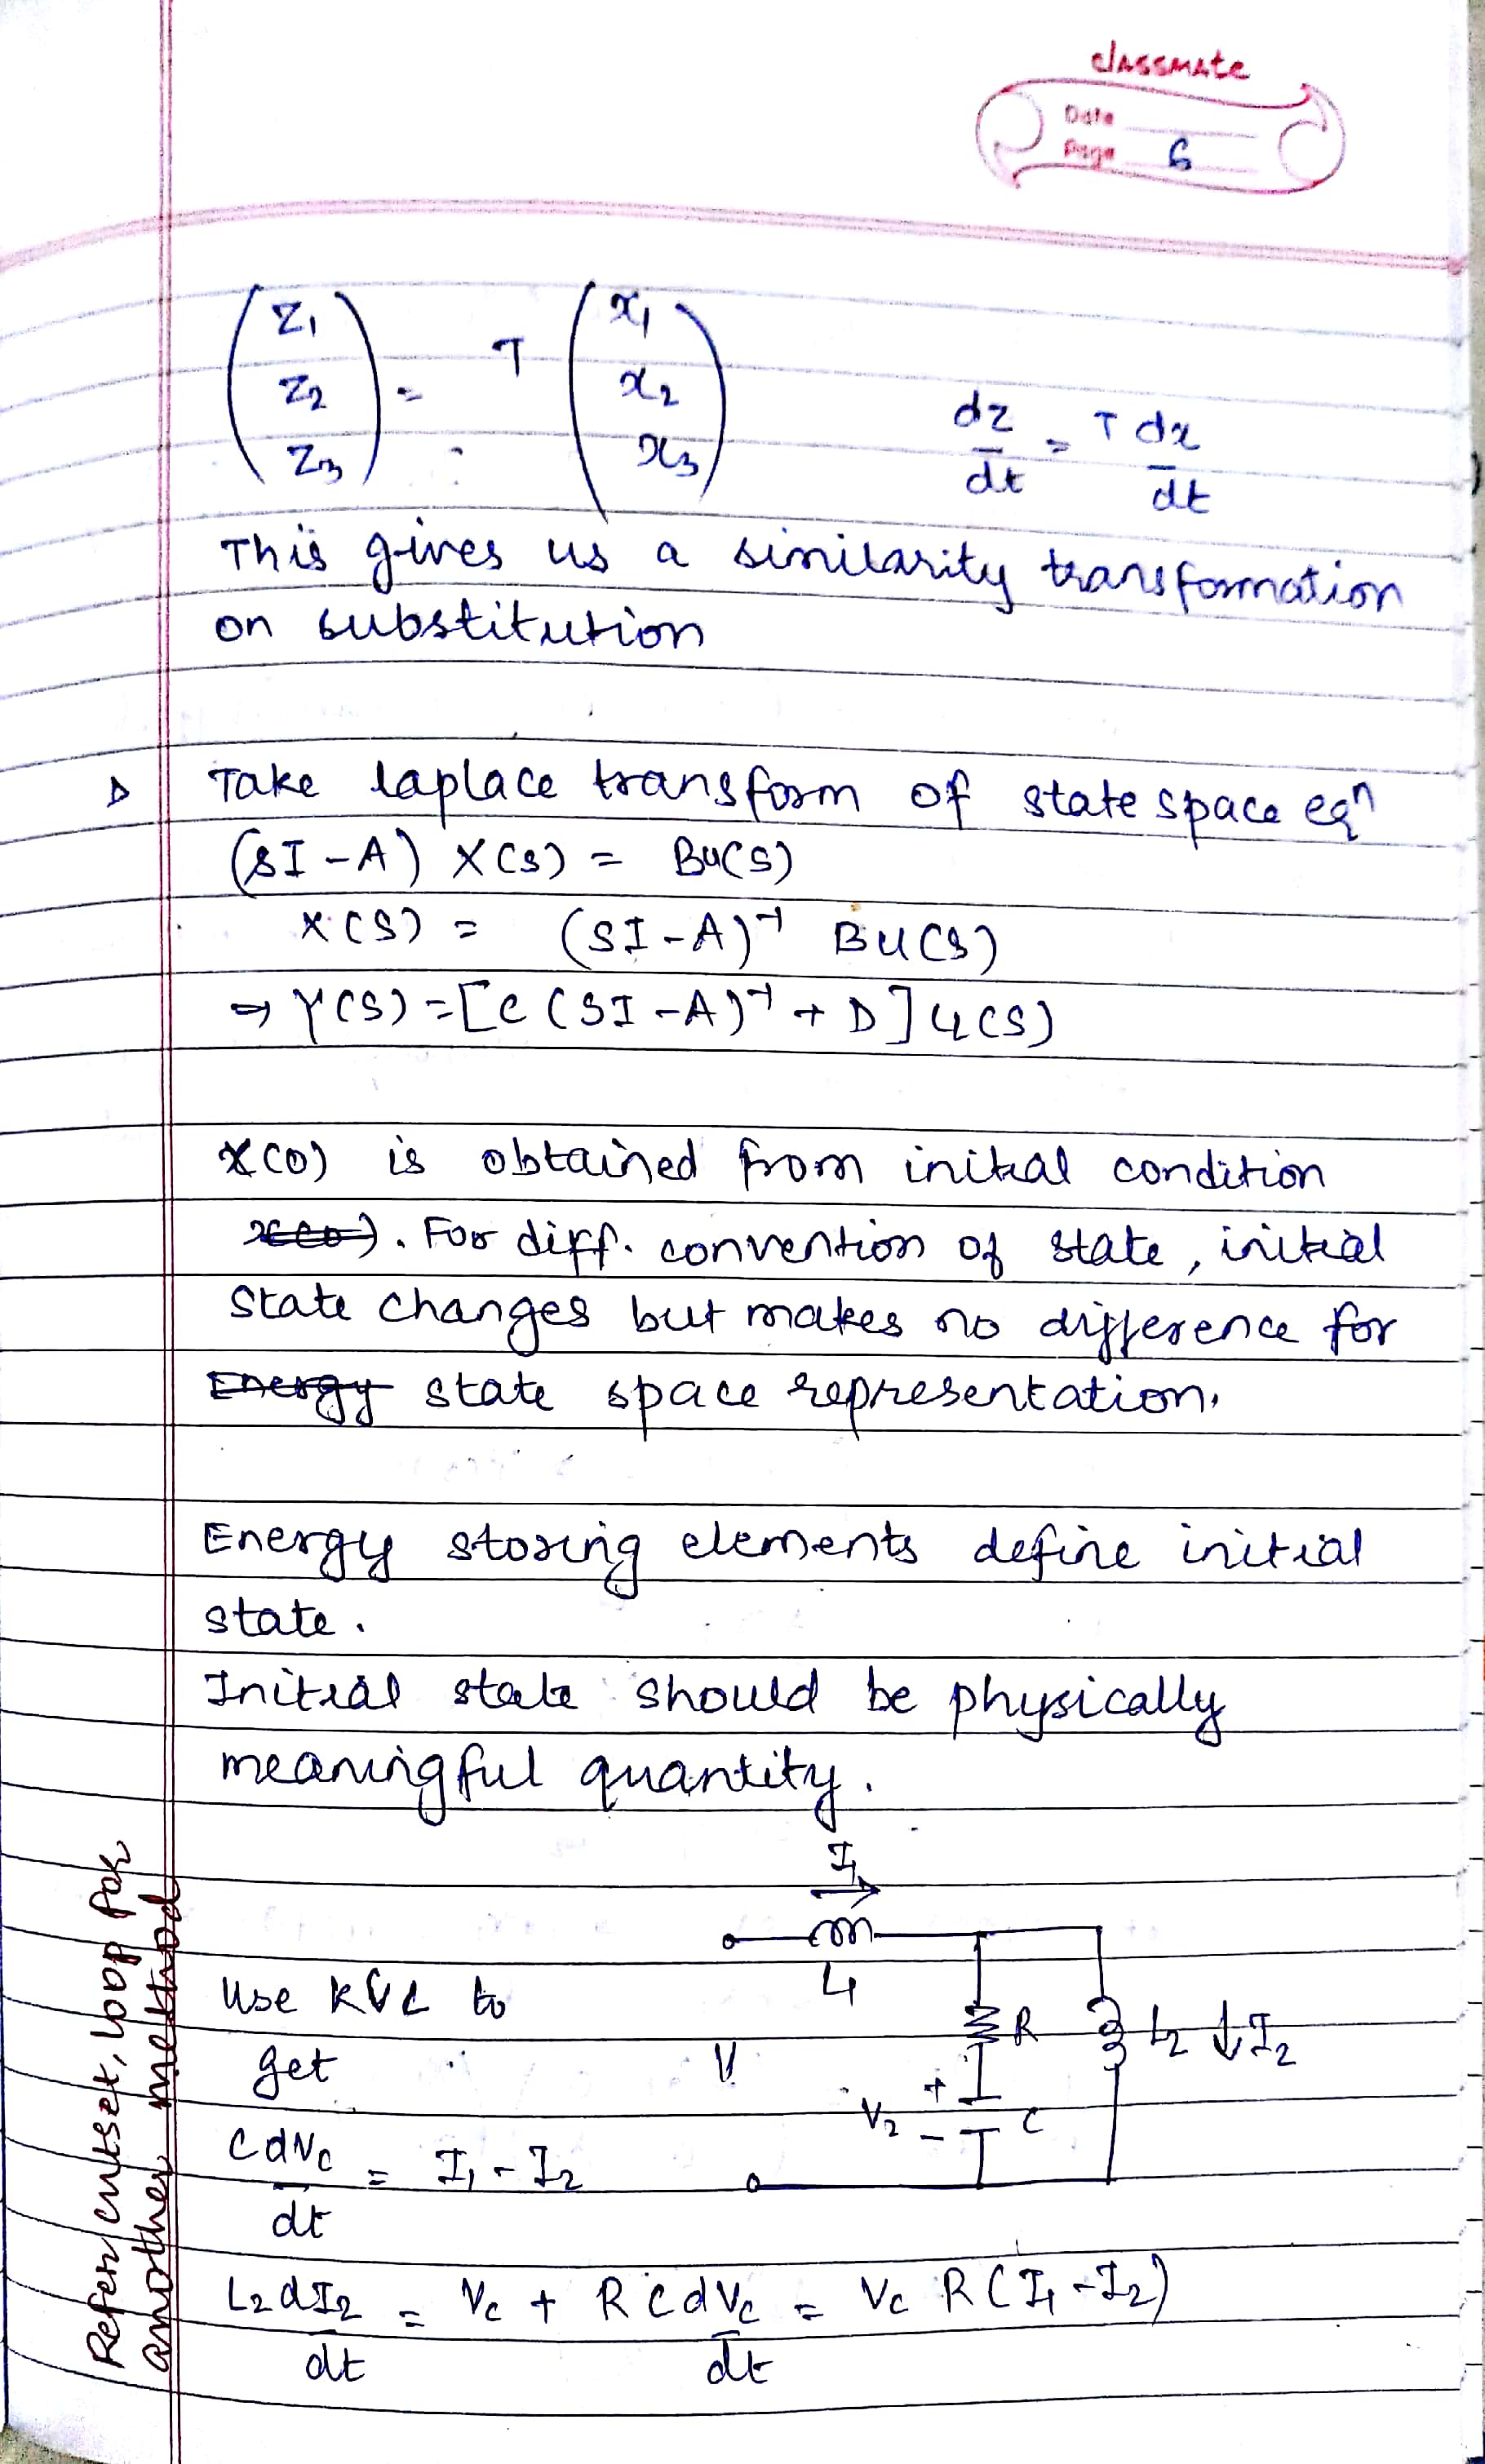 classmate
Date
Page 6
(z₁ z₂ z₃) = T (x₁ x₂ x₃)
dz/dt = T dx/dt
This gives us a similarity transformation
on substitution
▷ Take laplace transform of state space eqⁿ
(sI - A) X(s) = BU(s)
X(s) = (sI - A)⁻¹ BU(s)
⇒ Y(s) = [C (sI - A)⁻¹ + D] U(s)
X(0) is obtained from initial condition
x(0). For diff. convention of state, initial
state changes but makes no difference for
Energy state space representation.
Energy storing elements define initial
state.
Initial state should be physically
meaningful quantity.
I₁
L₁
Use KVL to
get
V
R
L₂ ↓I₂
+
V₂ - C
C dVc/dt = I₁ - I₂
L₂ dI₂/dt = Vc + RC dVc/dt = Vc R(I₁ - I₂)
Refer cutset, loop for
another method